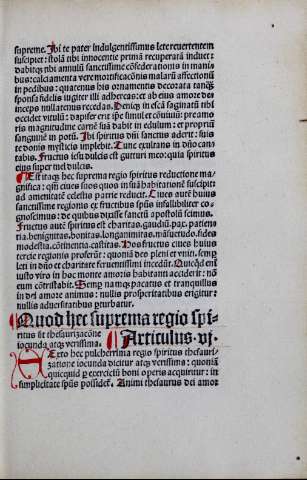 supreme. Ibi te pater indulgentissimus lete reuertentem
suscipiet: stolā tibi innocentie primā recuperatā induet:
dabitq3 tibi annulū sanctissime cōfederationis in mani
bus: calciamenta vere mortificatiōnis malarū affectionū
in pedibus: quatenus his ornamentis decorata tanq̄3
sponsa fidelis iugiter illi adhereas: et ab eius amore des
inceps nullatenus recedas. Deniq3 in escā saginatū tibi
occidet vitulū: dapifer erit ip̄e simul et cōuiuū: preamo
ris magnitudine carnē suā dabit in edulium: et propriū
sanguinē in potū. Ibi spiritus dn̄i sanctius aderit: suis
te donis mysticis implebit. Tunc exultans in dn̄o can
tabis. Fructus iesu dulcis est gutturi meo: quia spiritus
eius super mel dulcis.
Est itaq3 hec suprema regio spiritus reductione ma
gnifica: qm̄ ciues suos quos in suā habitationē suscipit:
ad amenitatē celestis patrie reducit. Ciues autē huius
sanctissime regionis ex fructibus sp̄us infallibiliter co-
gnoscimus: de quibus dixisse sanctū apostolū scimus.
Fructus autē spiritus est charitas. gaudiū. pax. patien
tia. benignitas. bonitas. longanimitas. māsuetudo. fides
modestia. cōtinentia. castitas. Hos fructus ciues huius
tercie regionis proferūt: quoniā deo pleni et vniti. semp̄
leti in dn̄o et charitate feruentissimi incedāt. Quicq̄d eni
iusto viro in hoc monte amoris habitanti acciderit: nō
eum cōtristabit. Semp̄ namq3 pacatus et tranquillus
in dei amore animus: nullis prosperitatibus erigitur:
nullis aduersitatibus p̄turbatur.
Quod hec suprema regio spi-
ritus sit thesaurizatiōne
iocunda atq3 verissima. Articulus. vj.
Sexto hec pulcherrima regio spiritus thesauri
zatione iocunda dicitur atq3 verissima: quoniā
quicquid p̄ exercicīū boni operis acquiritur: in
simplicitate sp̄us possidet̄. Animi thesaurus dei amor